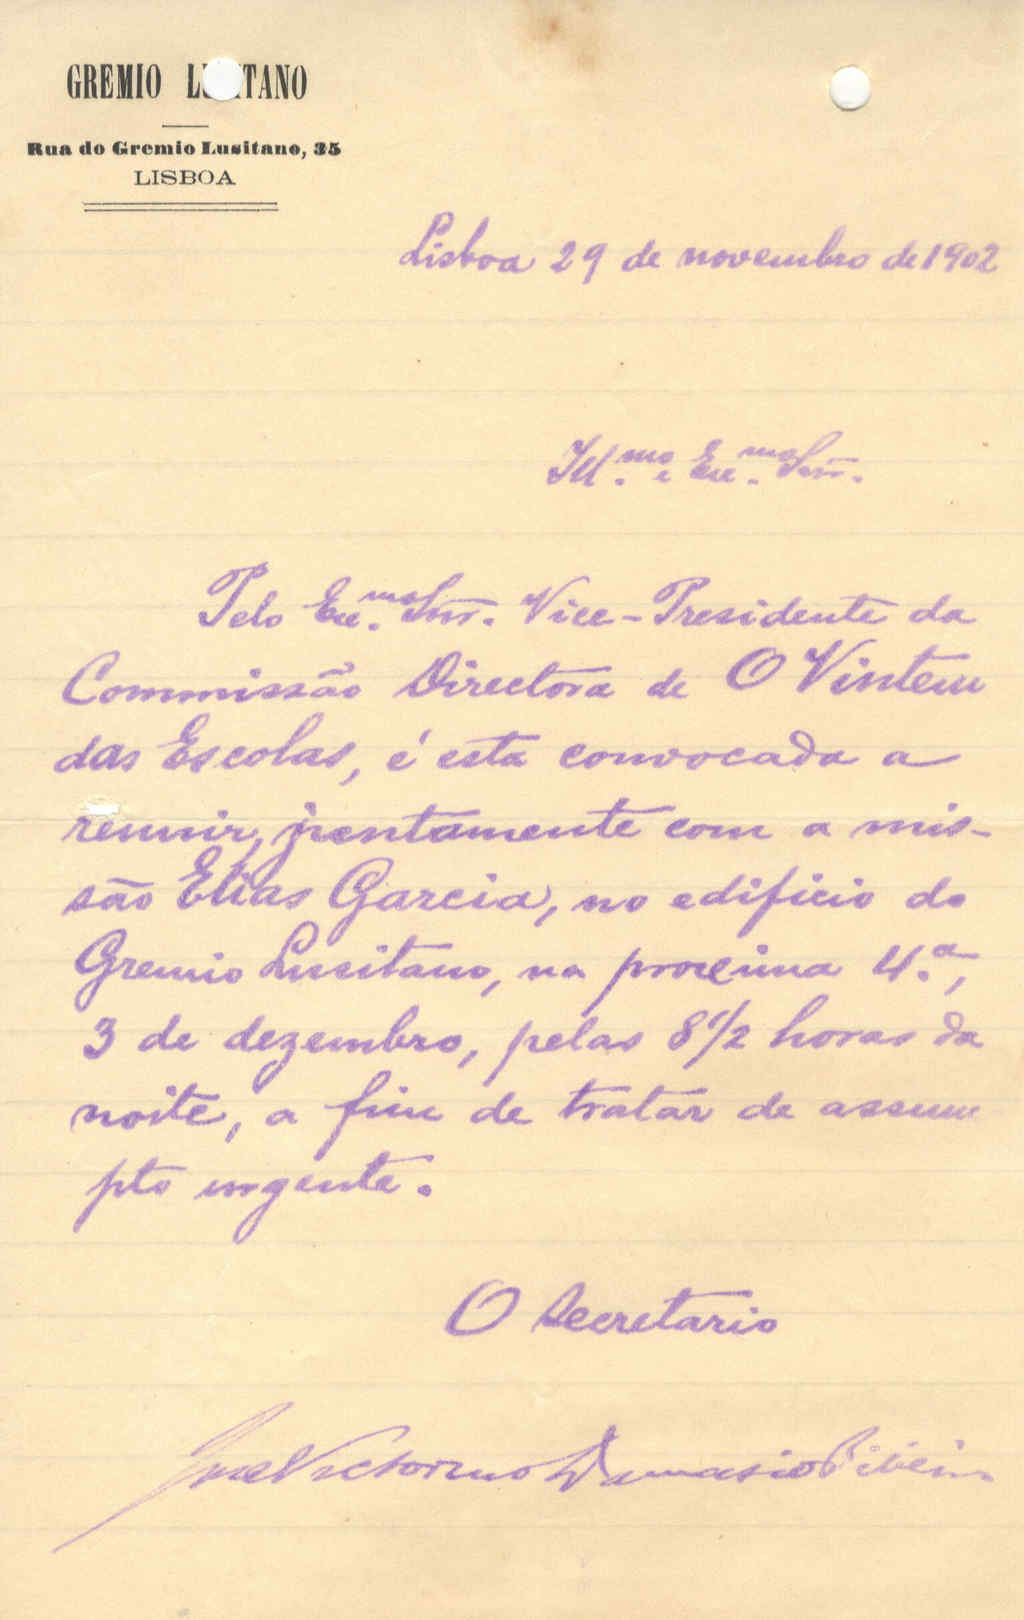 GREMIO LUSITANO
Rua do Gremio Lusitano, 35
LISBOA
Lisboa 29 de novembro de 1902
Ill.mo e Exc.mo Snr.
Pelo Exc.mo Snr. Vice-Presidente da
Commissão Directora de O Vintem
das Escolas, é esta convocada a
reunir, juntamente com a mis-
são Elias Garcia, no edificio do
Gremio Lusitano, na proxima 4.ª,
3 de dezembro, pelas 8 1/2 horas da
noite, a fim de tratar de assum
pto urgente.
O Secretario
José Victorino Damasio Ribeiro